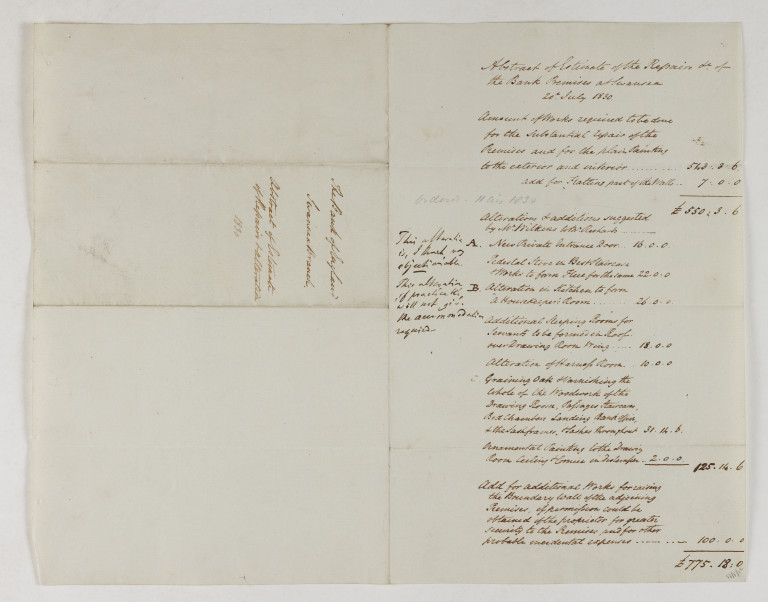 Abstract of Estimate of the Repairs &c. of
the Bank Premises at Swansea
20th July 1830
Amount of Works required to be done
for the Substantial repair of the
Premises and for the plain Painting
to the exterior and interior ............ 543.3.6
add for Flatting part of the Walls .. 7.0.0
£550.3.6
Alterations & additions suggested
by Mr Wilkins
A. New Private Entrance Door . 16.0.0
Pedestal Stove in Best Staircase
& Works to form Flue for the same 22.0.0
B. Alteration in Kitchen to form
a Housekeepers Room ........ 26.0.0
Additional Sleeping Rooms for
Servants to be formed in Roof
over Drawing Room Wing ..... 18.0.0
Alteration of Harness Room . 10.0.0
C Graining Oak & Varnishing the
whole of the Woodwork of the
Drawing Room, Passages Staircase,
Bed Chamber Landing Bank Office,
& the Sashframes, & Sashes throughout 31.14.6
Ornamental Painting to the Drawing
Room Ceiling & Cornice in Distemper .. 2.0.0
125.14.6
Add for additional Works for raising
the Boundary Wall of the adjoining
Premises, if permission could be
obtained of the proprietor for greater
security to the Premises and for other
probable incidental expenses ........... 100.0.0
£775.18.0
This alteration
is, I think, very
objectionable.
This alteration
if practicable,
will not give
the accommodation
required
The Bank of England
Swansea Branch,
Abstract of Estimate
of Repairs & alterations
1830